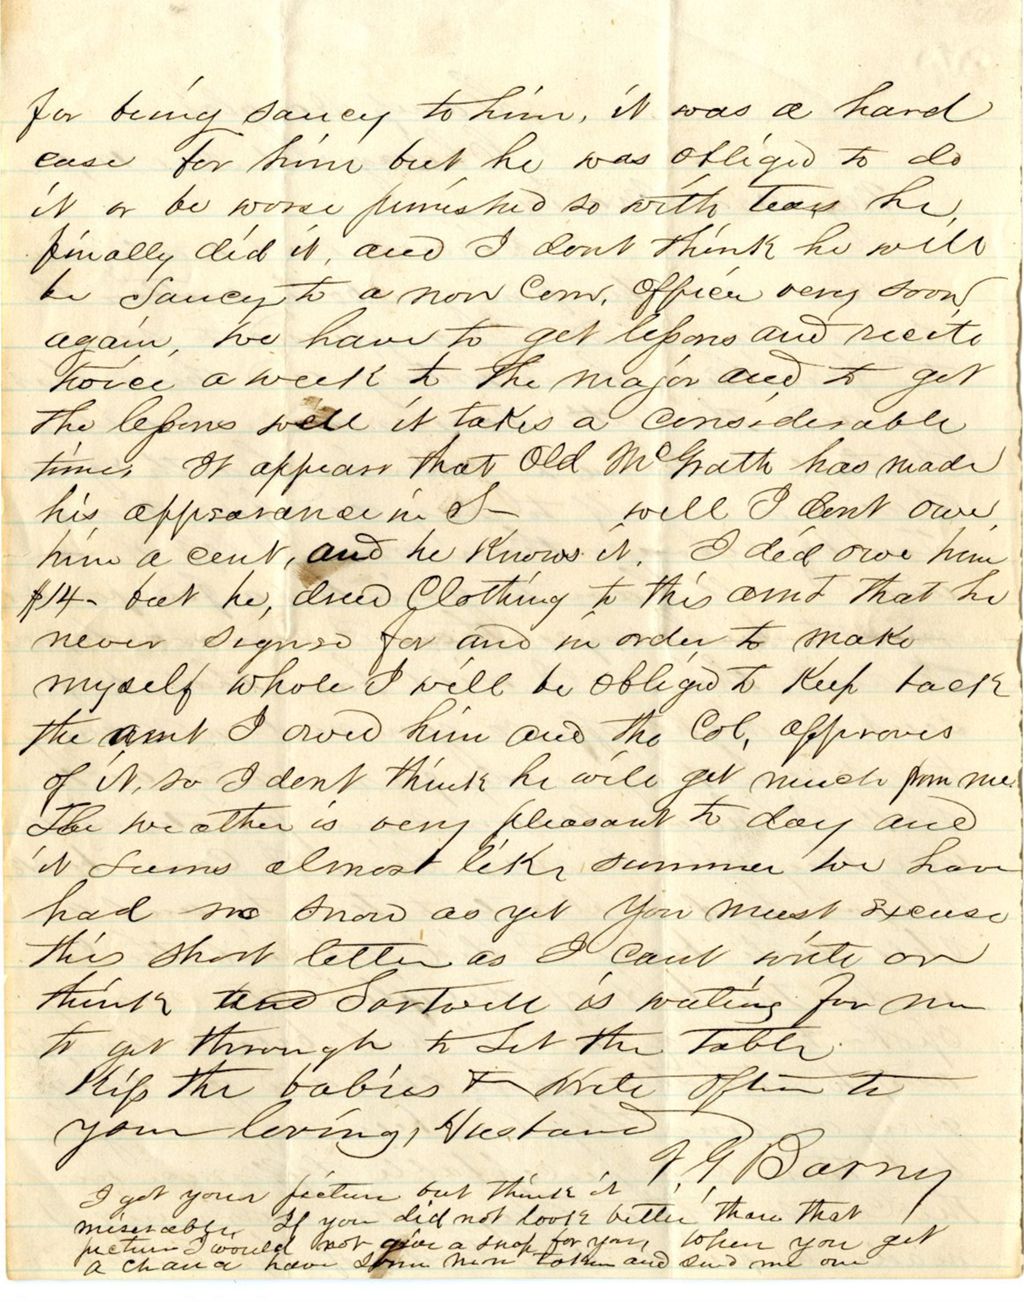 for being saucy to him, it was a hard
case for him but he was obliged to do
it or be worse punished so with tears he
finally did it, and I dont think he will
be Saucy to a non Com, officer very soon
again, We have to get lessons and recite
twice a week to the major and to get
the lessons well it takes a considerable
time, It appears that Old McGrath has made
his appearance in S— well I dont owe
him a cent, and he Knows it. I did owe him
$14- but he, drew Clothing to this amt that he
never signed for and in order to make
myself whole I will be obliged to Keep back
the amt I owed him and the Col, approves
of it, so I dont think he will get much from me
The weather is very pleasant to day and
it seems almost like summer we have
had no snow as yet You must Excuse
this short letter as I cant write or
think and Sartwell is wating for me
to get through to Set the Table
Kiss the babies & Write Often to
your loving, Husband
V. G. Barny
I got your picture but think it
miserable If you did not look better than that
picture I would not give a snap for you, When you get
a chance have some more taken and send me one